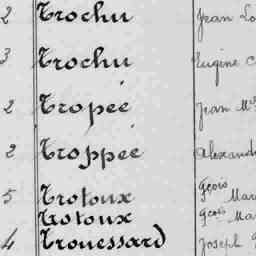 2 Trochu Jean Lo
3 Trochu Eugène C
2 Tropée Jean M
2 Troppée Alexand
5 Trotoux Fçois Mar
Trotoux Fçois Ma
4 Trouessard Joseph